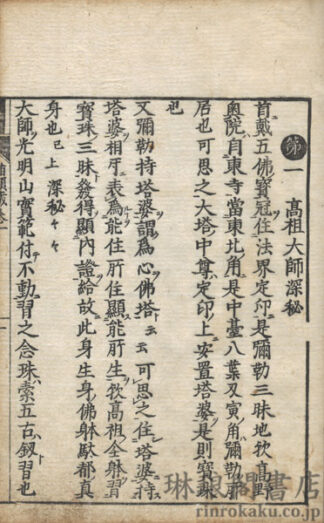 第一 高祖大師深秘
首戴五佛寶冠住法界定印是彌勒三昧地欤高野
奥院自東寺當東北角是中臺八葉又寅角彌勒
居也可思之大塔中尊定印上安置塔婆是則寶珠
也
又彌勒持塔婆謂爲心佛塔云云可思之住塔婆持
塔婆相歹表爲能住所住顯能所生欤高祖全躰習
寶珠三昧發得顯内證給故此身生身佛躰猒都真
身也已上 深秘々々
大師光明山實範付不動習之念珠索五古釼習也
琳琅閣書店
rinrokaku.co.jp